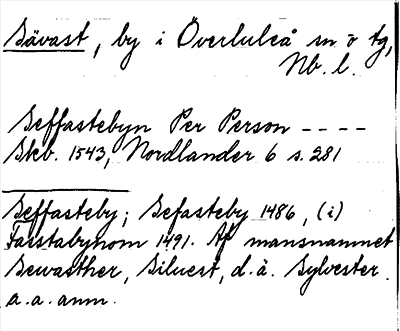 Sävast, by i Överluleå sn o tg,
Nb. l.
Seffastebyn Per Person ----
Skb. 1543, Nordlander 6 s. 281
Seffasteby; Sefasteby 1486, (i)
Fasstabynom 1491. Af mansnamnet
Sewasther, Siluest, d.ä. Sylvester.
a.a. anm.